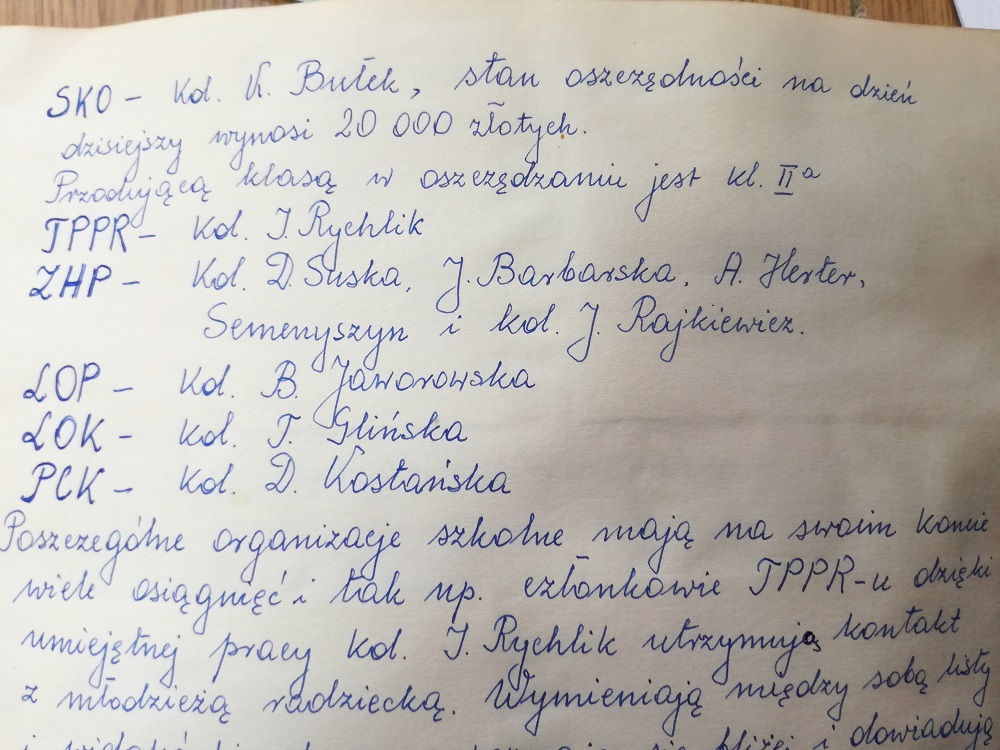 SKO - Kol. K. Bułek, stan oszczędności na dzień
dzisiejszy wynosi 20 000 złotych.
Przodującą klasą w oszczędzaniu jest kl. IIa
TPPR - Kol. I. Rychlik
ZHP - Kol. D. Suska, J. Barbarska, A. Herter,
Semenyszyn i kol. J. Rajkiewicz.
LOP - Kol. B. Jaworowska
LOK - Kol. T. Glińska
PCK - Kol. D. Kostańska
Poszczególne organizacje szkolne mają na swoim koncie
wiele osiągnięć i tak np. członkowie TPPR-u dzięki
umiejętnej pracy kol. I. Rychlik utrzymują kontakt
z młodzieżą radziecką. Wymieniają między sobą listy
się bliżej i dowiadują